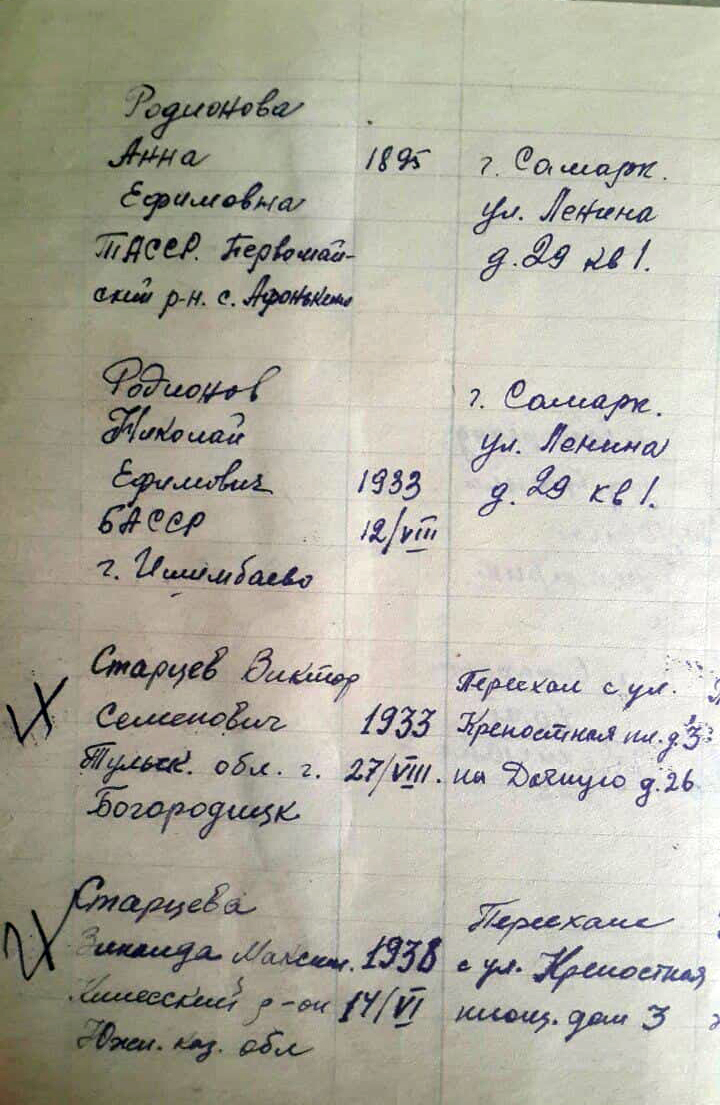 Родионова
Анна 1895 г. Самарк.
Ефимовна ул. Ленина
ТАССР. Первомай- д. 29 кв 1.
ский р-н. с.
Родионов г. Самарк.
Николай ул. Ленина
Ефимович 1933 д. 29 кв 1.
БАССР 12/VIII
г. Ишимбаево
Старцев Виктор Переехал с ул.
Семенович 1933 Крепостная пл. д. 3
Тульск. обл. г. 27/VIII. на д. 26
Богородицк
Старцева Переехала
Зинаида Максим. 1938 с ул. Крепостная
р-он 14/VI площ. дом 3
Южн. каз. обл